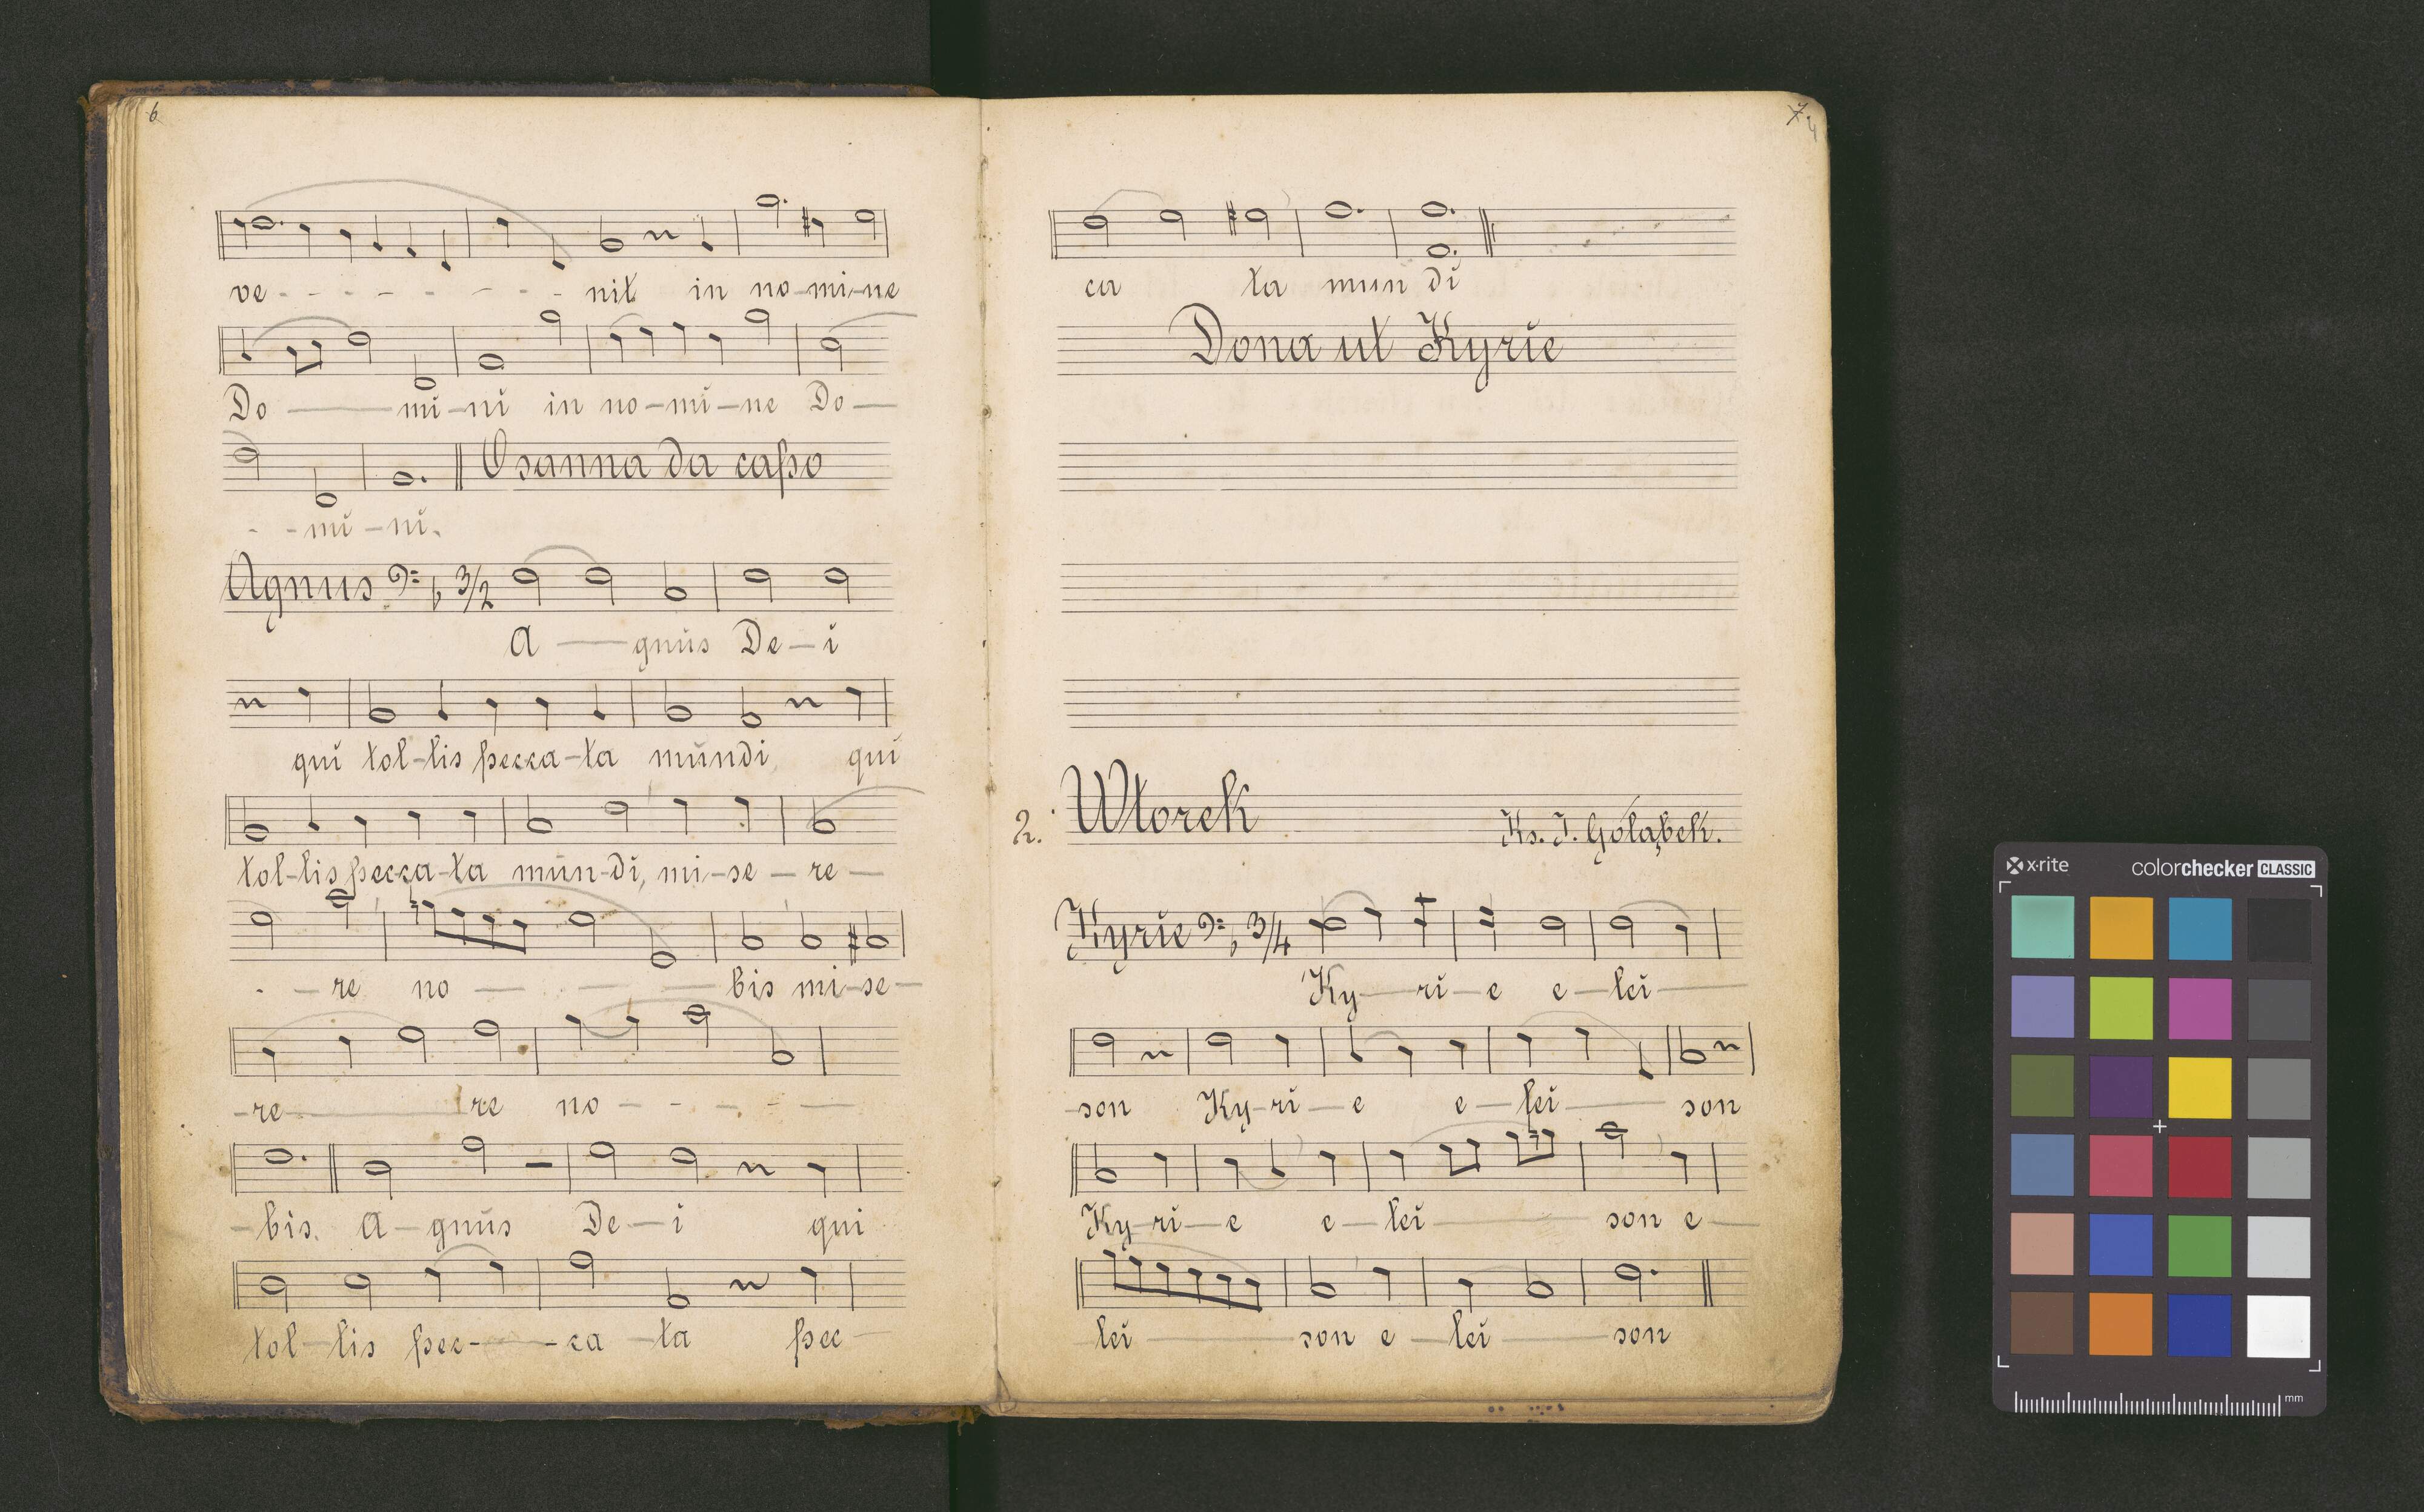 6
ve - - - - - - - nit in no-mi-ne
Do — mi-ni in no-mi-ne Do—
Osanna da capo
- - mi-ni.
Agnus 3/2
A — gnus De-i
qui tol-lis pecca-ta mundi, qui
tol-lis pecca-ta mun-di, mi-se-re—
- - re no — — — bis mi-se-
-re — re no - - - - —
-bis. A-gnus De-i qui
tol-lis pec- - -ca-ta pec—
7.
4
ca ta mun di
Dona ut Kyrie
2. Wtorek Ks. J. Gołąbek.
Kyrie 3/4
Ky — ri-e e-lei —
-son Ky-ri-e e-lei — son
Ky-ri-e e-lei — son e—
lei — son e-lei — son
x·rite colorchecker CLASSIC
mm